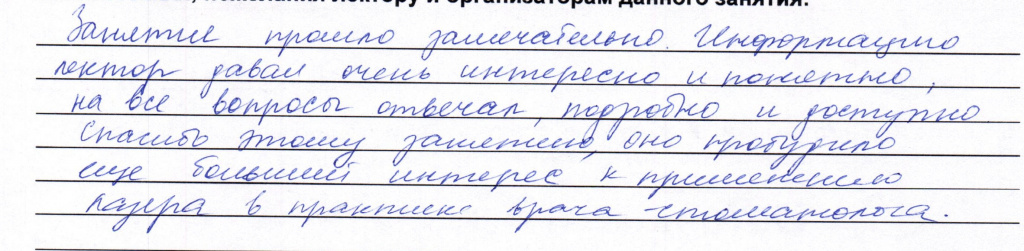 пожелания лектору и организаторам данного занятия:
Занятие прошло замечательно. Информацию
лектор давал очень интересно и понятно,
на все вопросы отвечал, подробно и доступно
Спасибо этому занятию, оно пробудило
еще больший интерес к применению
лазера в практике врача-стоматолога.